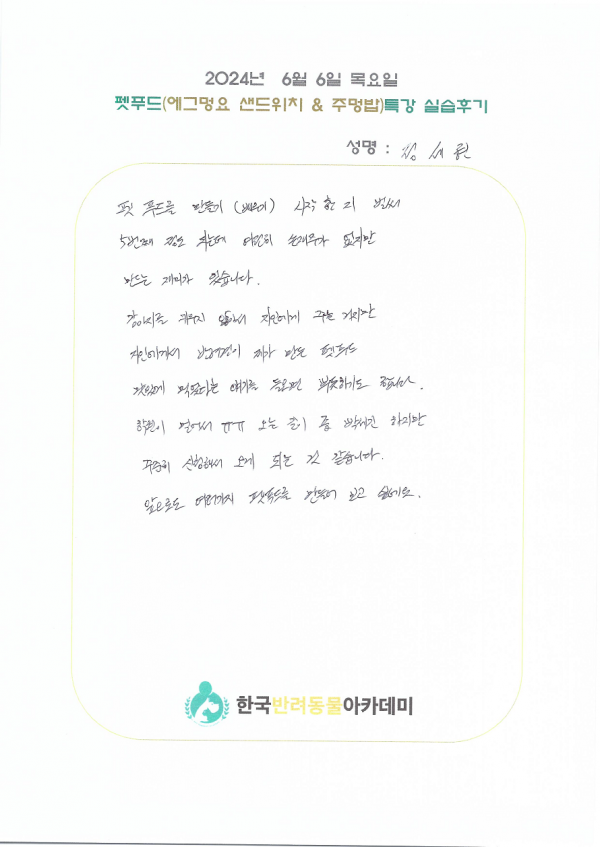 2024년 6월 6일 목요일
펫푸드(에그멍요 샌드위치 & 주멍밥)특강 실습후기
성명 : 김세원
펫 푸드를 만들기 (배우기) 시작 한 지 벌써
5번째 정도 되는데 여전히 손재주가 없지만
만드는 재미가 있습니다.
강아지를 키우지 않아서 지인에게 주는 거지만
지인에게서 반려견이 제가 만든 펫푸드
맛있게 먹었다는 얘기를 들으면 뿌듯하기도 합니다.
학원이 멀어서 ㅠㅠ 오는 길이 좀 빡세긴 하지만
꾸준히 신청해서 오게 되는 것 같습니다.
앞으로도 여러가지 펫푸드를 만들어 보고 싶네요.
한국반려동물아카데미